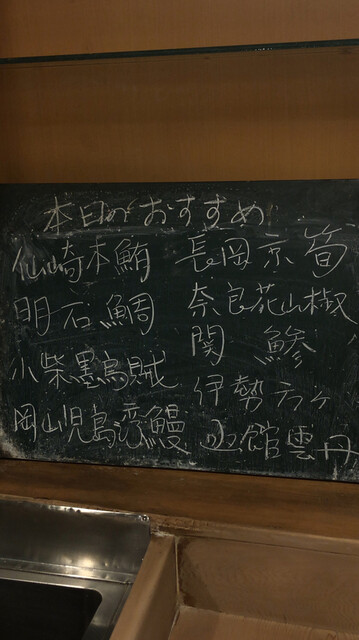 本日のおすすめ
仙崎本鮪
明石鯛
小柴墨烏賊
岡山児島湾鰻
長岡京筍
奈良花山椒
関 鯵
伊勢云ヶ
函館雲丹